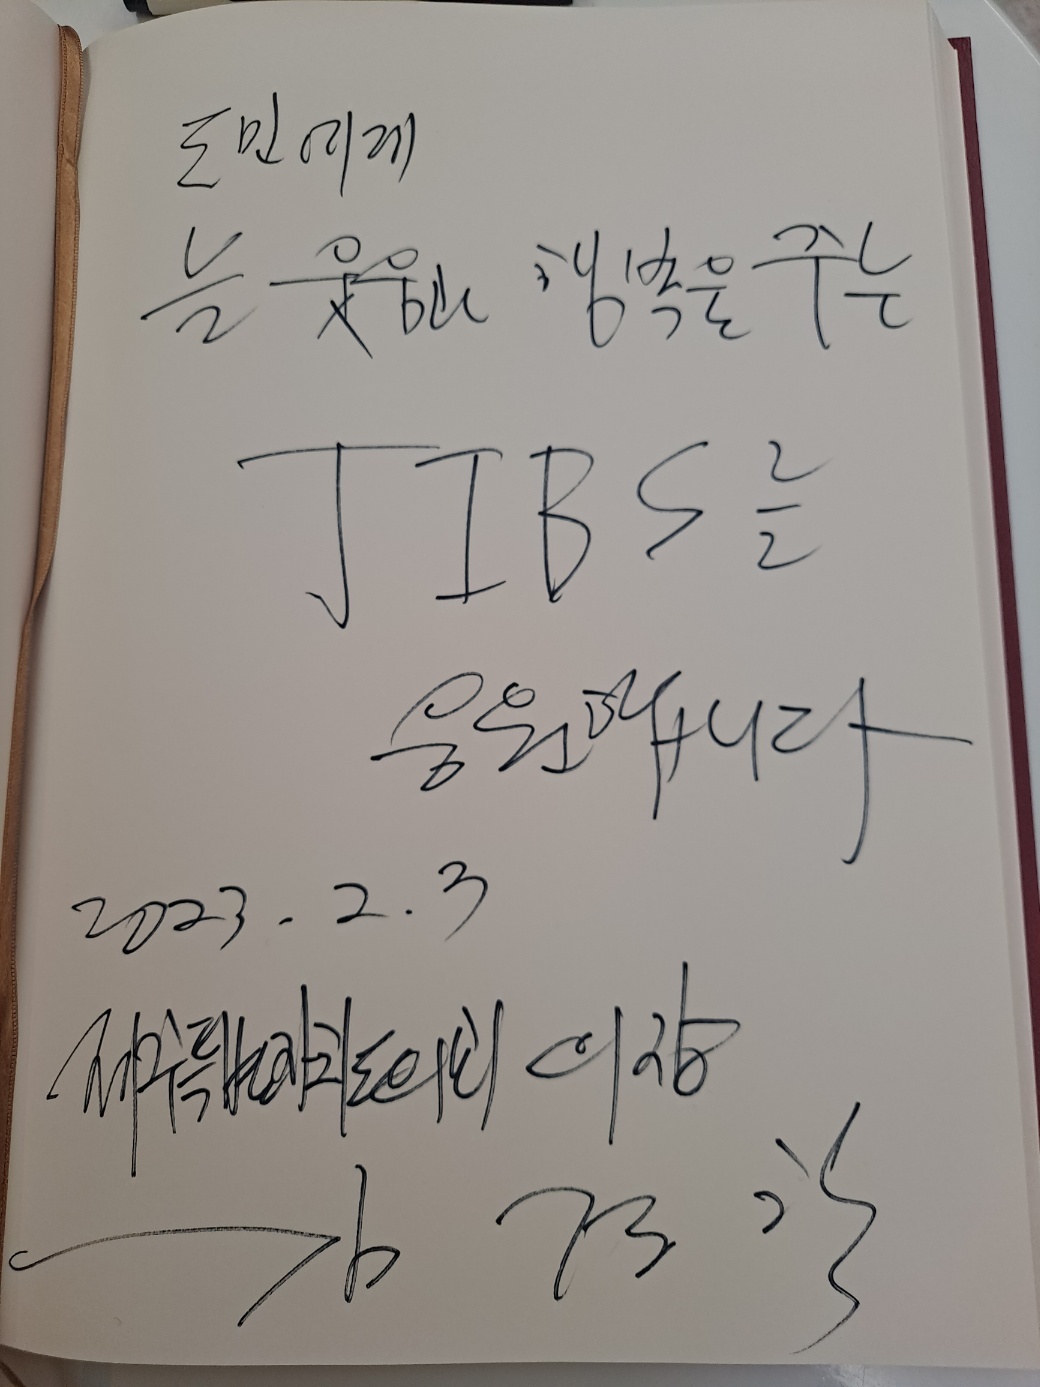 도민에게
늘 웃음과 행복을 주는
JIBS를
응원합니다
2023. 2. 3
제주특별자치도의회 의장
김 경 학